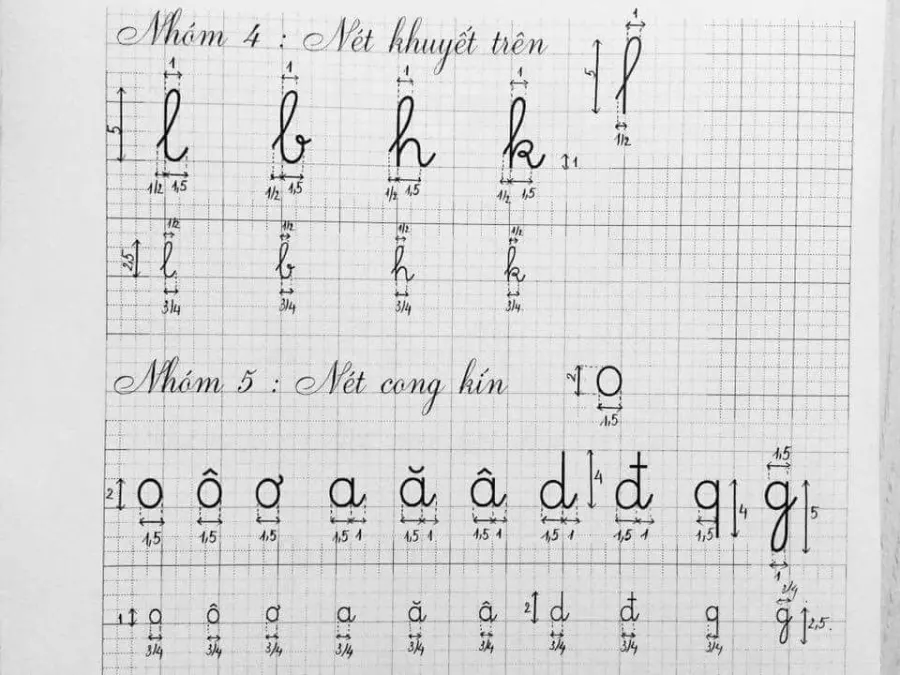 Nhóm 4 : Nét khuyết trên
1
5
1/2
1 1 1 1
5
l b h k
1
1/2 1,5 1/2 1,5 1/2 1,5 1/2 1,5
1/2 1/2 1/2 1/2
2,5 l b h k
3/4 3/4 3/4 3/4
Nhóm 5 : Nét cong kín
2 o
1,5
1,5
4
2 o ô ơ a ă â d đ q g
4 5
1,5 1,5 1,5 1,5 1 1,5 1 1,5 1 1,5 1 1,5 1 1,5
1
3/4
1 o ô ơ a ă â 2 d đ q g 2,5
3/4 3/4 3/4 3/4 3/4 3/4 3/4 3/4 3/4